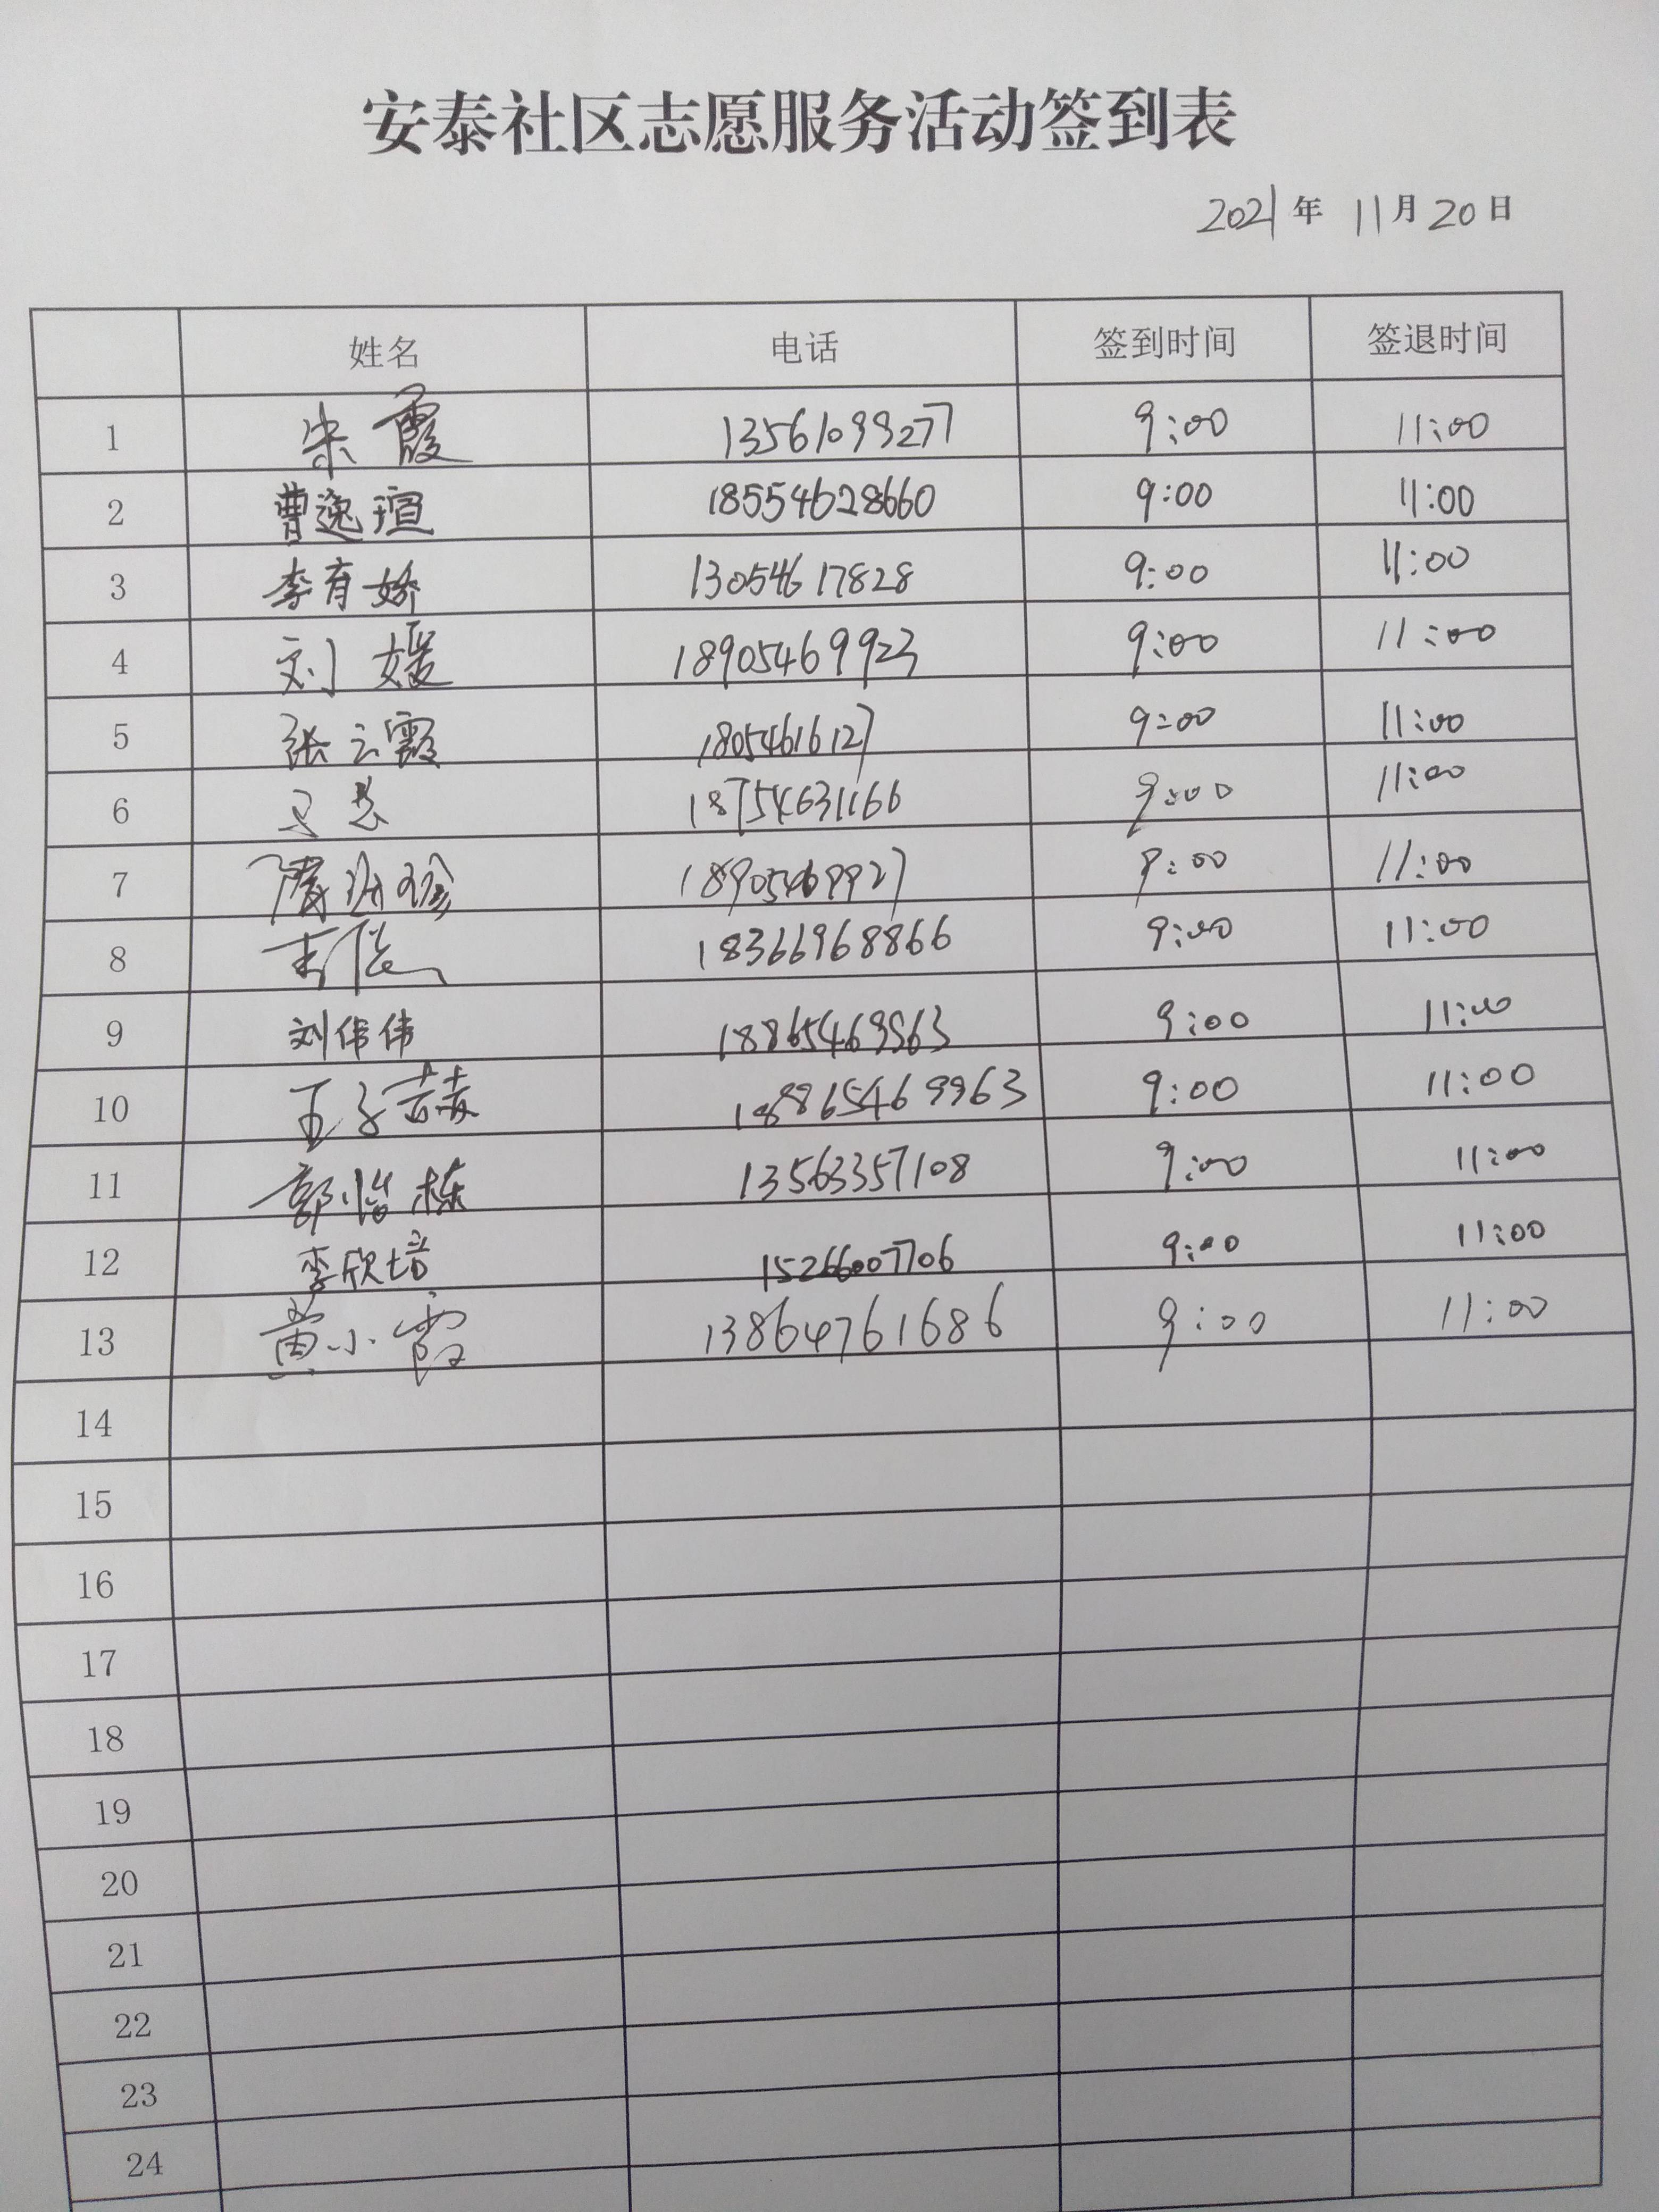 安泰社区志愿服务活动签到表
2021年 11月20日
姓名 电话 签到时间 签退时间
1 朱霞 13561099277 9:00 11:00
2 曹逸瑄 18554628660 9:00 11:00
3 李育娇 13054617828 9:00 11:00
4 刘媛 18905469923 9:00 11:00
5 张云霞 18054616127 9:00 11:00
6 18754631166 9:00 11:00
7 18905469927 9:00 11:00
8 18366968866 9:00 11:00
9 刘伟伟 18865469963 9:00 11:00
10 王子喆 18865469963 9:00 11:00
11 郭怡栋 13563357108 9:00 11:00
12 李欣培 15266007706 9:00 11:00
13 黄小霞 13864761686 9:00 11:00
14
15
16
17
18
19
20
21
22
23
24